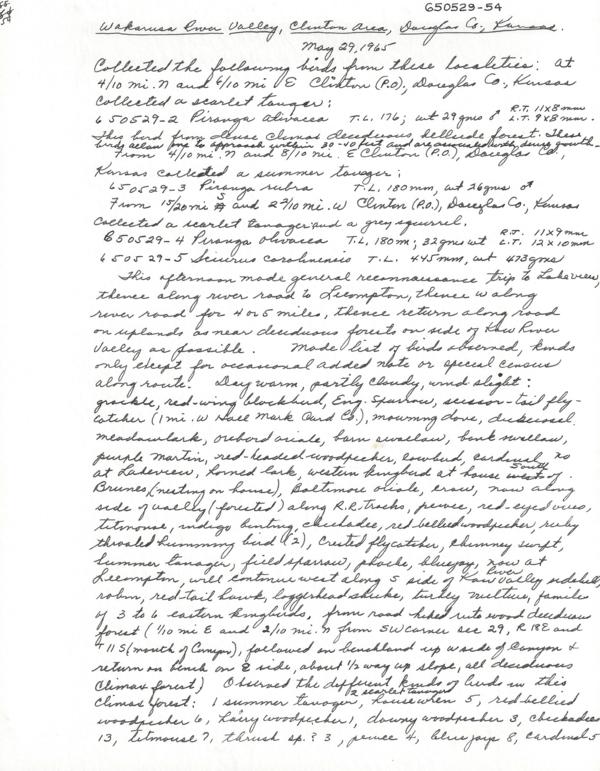 650529-54
Wakarusa River Valley, Clinton Area, Douglas Co., Kansas.
May 29, 1965
Collected the following birds from these localities: at
4/10 mi. N and 6/10 mi E Clinton (P.O.), Douglas Co., Kansas
collected a scarlet tanager:
650529-2 Piranga olivacea T.L. 176; wt 29gms ♂ R.T. 11x8mm L.T. 9x8mm.
This bird from dense climax deciduous, hillside forest. These
birds allow one to approach within 30-40 feet and are associated with dense growth.
From 4/10 mi. N and 8/10 mi. E Clinton (P.O.), Douglas Co.,
Kansas collected a summer tanager:
650529-3 Piranga rubra T.L. 180mm, wt 26gms ♂
From 15/20 mi S and 2 9/10 mi. W Clinton (P.O.), Douglas Co., Kansas
collected a scarlet tanager and a grey squirrel.
650529-4 Piranga olivacea T.L. 180m; 32gms wt R.T. 11x9mm L.T. 12x10mm
650529-5 Sciurus carolinensis T.L. 445mm, wt 473gms
This afternoon made general reconnaissance trip to Lakeview,
thence along river road to Lecompton, thence W along
river road for 4 or 5 miles, thence return along road
on uplands as near deciduous forests on side of Kaw River
Valley as possible. Made list of birds observed, kinds
only except for occasional added note or special census
along route. Day warm, partly cloudy, wind slight:
grackle, red-wing blackbird, Eng. Sparrow, scissor-tail fly-
catcher (1 mi. W Hall Mark Card Co.), mourning dove, dickcissel,
meadowlark, orchard oriole, barn swallow, bank swallow,
purple martin, red-headed-woodpecker, cowbird, cardinal, no
at Lakeview, horned lark, western kingbird at house south of
Brunes, (nesting on house), Baltimore oriole, crow, now along
side of valley (forested) along R.R. tracks, pewee, red-eyed vireo,
titmouse, indigo bunting, chickadee, red bellied woodpecker, ruby
throated humming bird (2), crested flycatcher, chimney swift,
summer tanager, field sparrow, phoebe, bluejay, now at
Lecompton, will continue west along S side of Kaw River Valley
robin, red-tail hawk, loggerhead shrike, turkey vulture, family
of 3 to 6 eastern kingbirds, from road hiked into wood deciduous
forest (1/10 mi E and 2/10 mi. N from SW corner sec 29, R 18E and
T 11 S (mouth of Canyon), followed on benchland up W side of Canyon &
return on bench on E side, about 1/2 way up slope, all deciduous
climax forest) Observed the different kinds of birds in this
climax forest: 1 summer tanager, 2 scarlet tanagers, house wren 5, red-bellied
woodpecker 6, hairy woodpecker 1, downy woodpecker 3, chickadee
13, titmouse 7, thrush sp.? 3, pewee 4, blue jays 8, cardinal 5